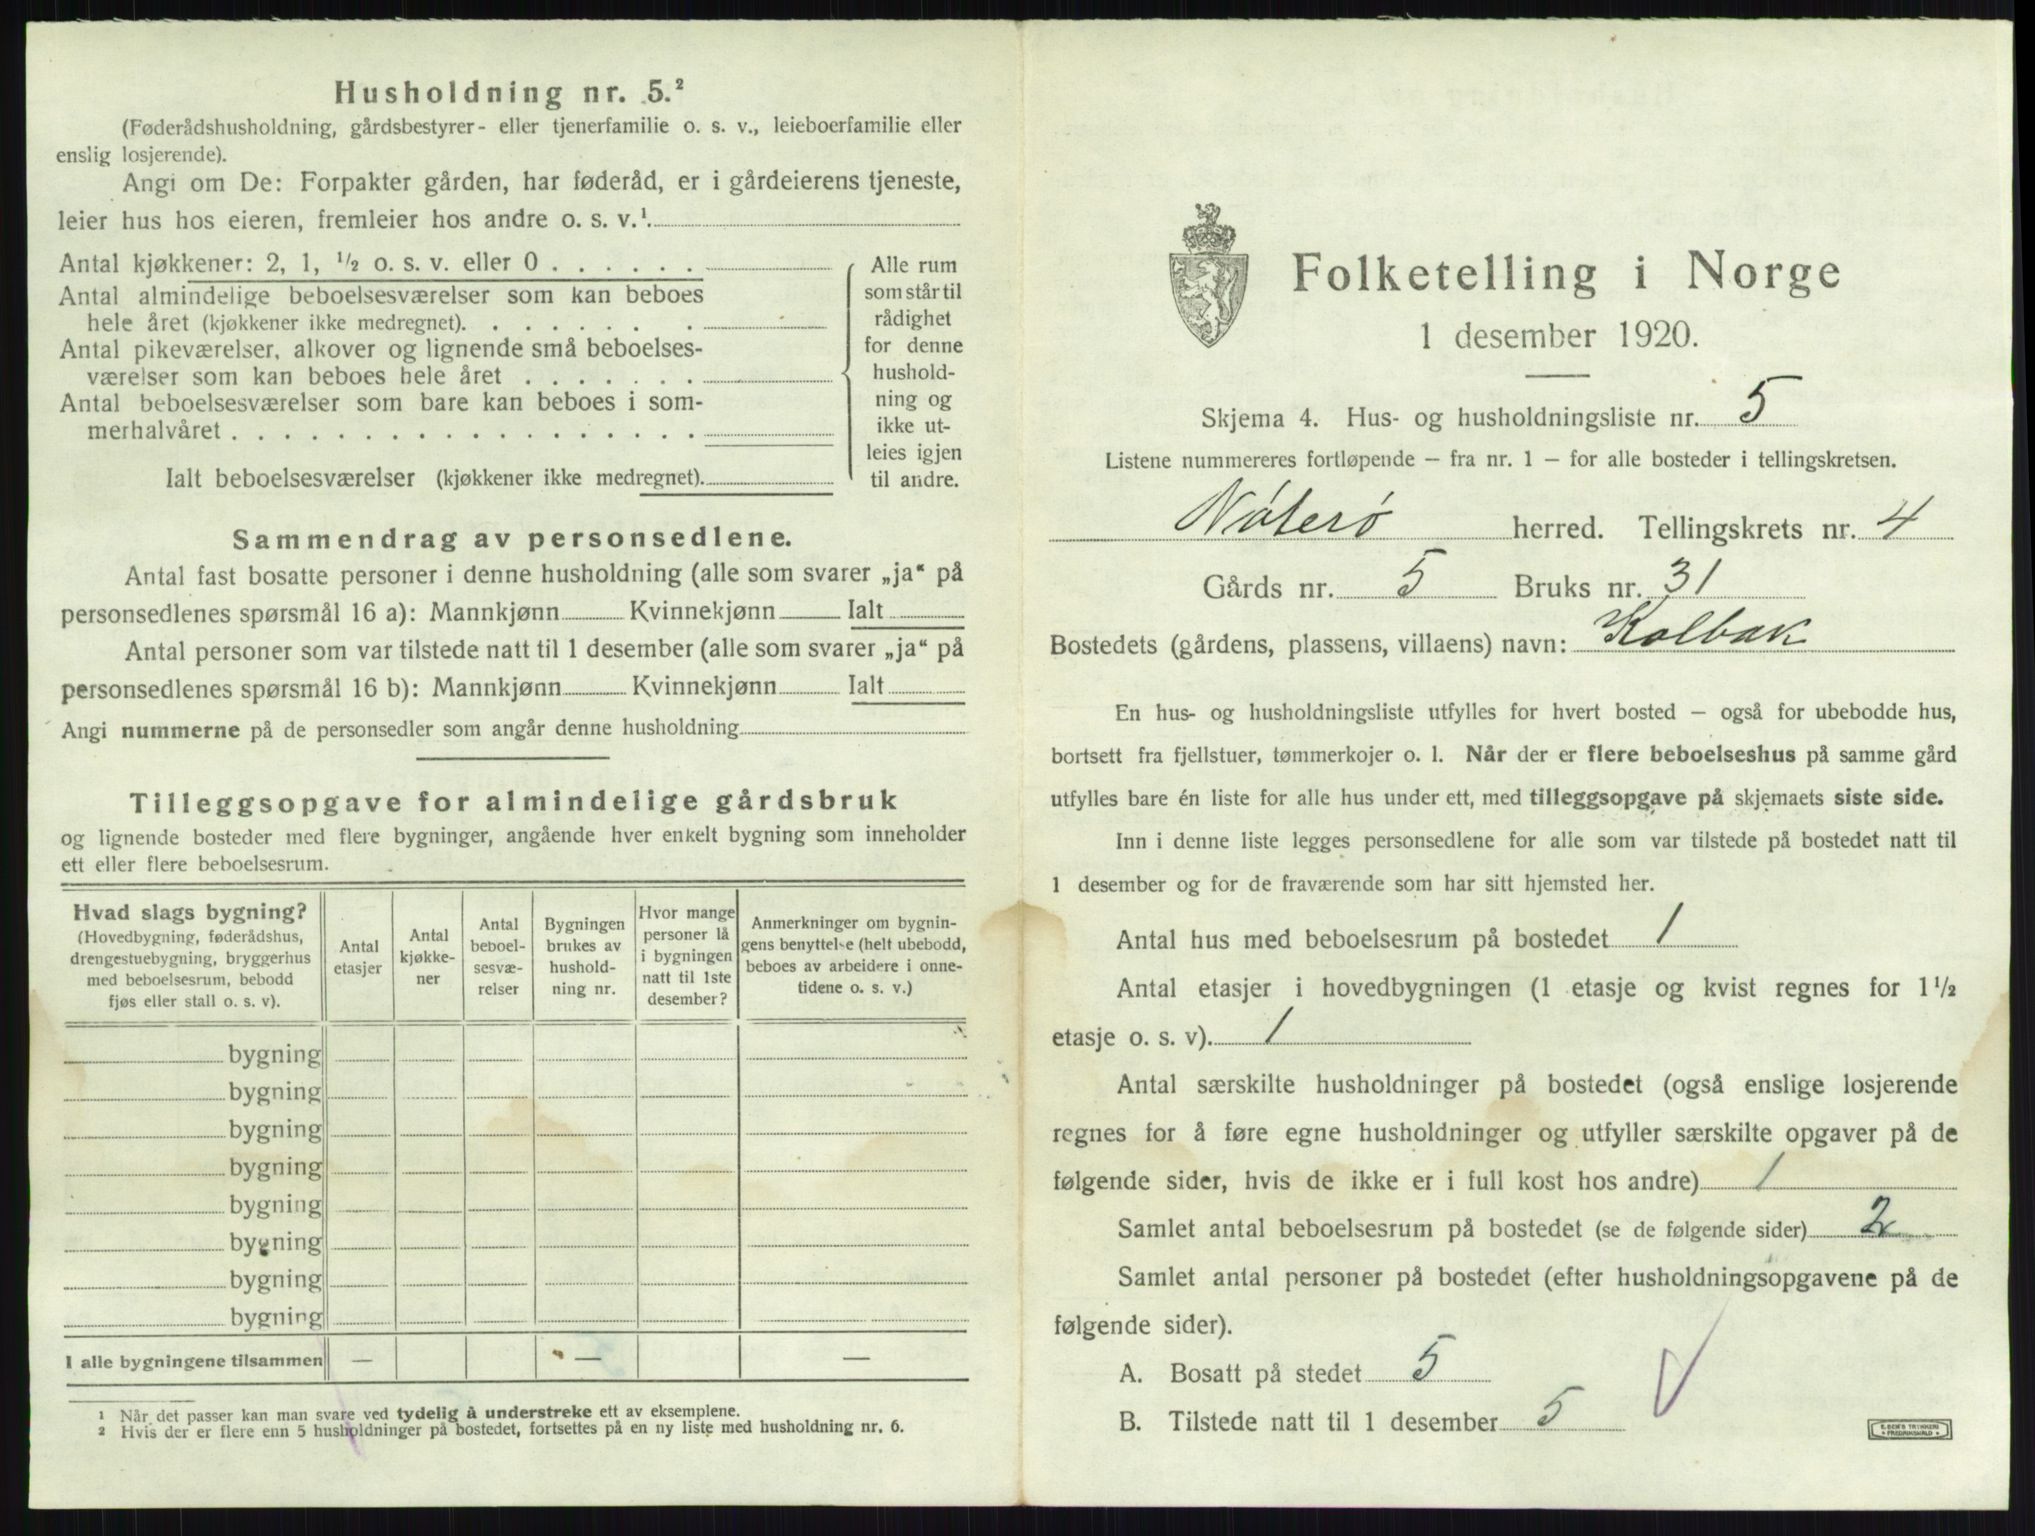 Husholdning nr. 5.²
(Føderådshusholdning, gårdsbestyrer- eller tjenerfamilie o. s. v., leieboerfamilie eller
enslig losjerende).
Angi om De: Forpakter gården, har føderåd, er i gårdeierens tjeneste,
leier hus hos eieren, fremleier hos andre o. s. v.¹
Antal kjøkkener: 2, 1, ½ o. s. v. eller 0 . . . . . .
Antal almindelige beboelsesværelser som kan beboes
hele året (kjøkkener ikke medregnet). . . . . . . .
Antal pikeværelser, alkover og lignende små beboelses-
værelser som kan beboes hele året . . . . . . .
Antal beboelsesværelser som bare kan beboes i som-
merhalvåret . . . . . . . . . . . . . . . . . .
Ialt beboelsesværelser (kjøkkener ikke medregnet).
Alle rum
som står til
rådighet
for denne
hushold-
ning og
ikke ut-
leies igjen
til andre.
Sammendrag av personsedlene.
Antal fast bosatte personer i denne husholdning (alle som svarer „ja“ på
personsedlenes spørsmål 16 a): Mannkjønn Kvinnekjønn Ialt
Antal personer som var tilstede natt til 1 desember (alle som svarer „ja“ på
personsedlenes spørsmål 16 b): Mannkjønn Kvinnekjønn Ialt
Angi nummerne på de personsedler som angår denne husholdning
Tilleggsopgave for almindelige gårdsbruk
og lignende bosteder med flere bygninger, angående hver enkelt bygning som inneholder
ett eller flere beboelsesrum.
Hvad slags bygning?
(Hovedbygning, føderådshus,
drengestuebygning, bryggerhus
med beboelsesrum, bebodd
fjøs eller stall o. s. v).
Antal
etasjer
Antal
kjøkke-
ner
Antal
beboel-
sesvæ-
relser
Bygningen
brukes av
hushold-
ning nr.
Hvor mange
personer lå
i bygningen
natt til 1ste
desember?
Anmerkninger om bygnin-
gens benyttelse (helt ubebodd,
beboes av arbeidere i onne-
tidene o. s. v.)
bygning
bygning
bygning
bygning
bygning
bygning
bygning
bygning
I alle bygningene tilsammen — — —
¹ Når det passer kan man svare ved tydelig å understreke ett av eksemplene.
² Hvis der er flere enn 5 husholdninger på bostedet, fortsettes på en ny liste med husholdning nr. 6.
Folketelling i Norge
1 desember 1920.
Skjema 4. Hus- og husholdningsliste nr. 5
Listene nummereres fortløpende – fra nr. 1 – for alle bosteder i tellingskretsen.
Nøterø herred. Tellingskrets nr. 4
Gårds nr. 5 Bruks nr. 31
Bostedets (gårdens, plassens, villaens) navn: Kolbak
En hus- og husholdningsliste utfylles for hvert bosted – også for ubebodde hus,
bortsett fra fjellstuer, tømmerkojer o. l. Når der er flere beboelseshus på samme gård
utfylles bare én liste for alle hus under ett, med tilleggsopgave på skjemaets siste side.
Inn i denne liste legges personsedlene for alle som var tilstede på bostedet natt til
1 desember og for de fraværende som har sitt hjemsted her.
Antal hus med beboelsesrum på bostedet 1
Antal etasjer i hovedbygningen (1 etasje og kvist regnes for 1½
etasje o. s. v). 1
Antal særskilte husholdninger på bostedet (også enslige losjerende
regnes for å føre egne husholdninger og utfyller særskilte opgaver på de
følgende sider, hvis de ikke er i full kost hos andre) 1
Samlet antal beboelsesrum på bostedet (se de følgende sider) 2
Samlet antal personer på bostedet (efter husholdningsopgavene på de
følgende sider).
A. Bosatt på stedet 5
B. Tilstede natt til 1 desember 5